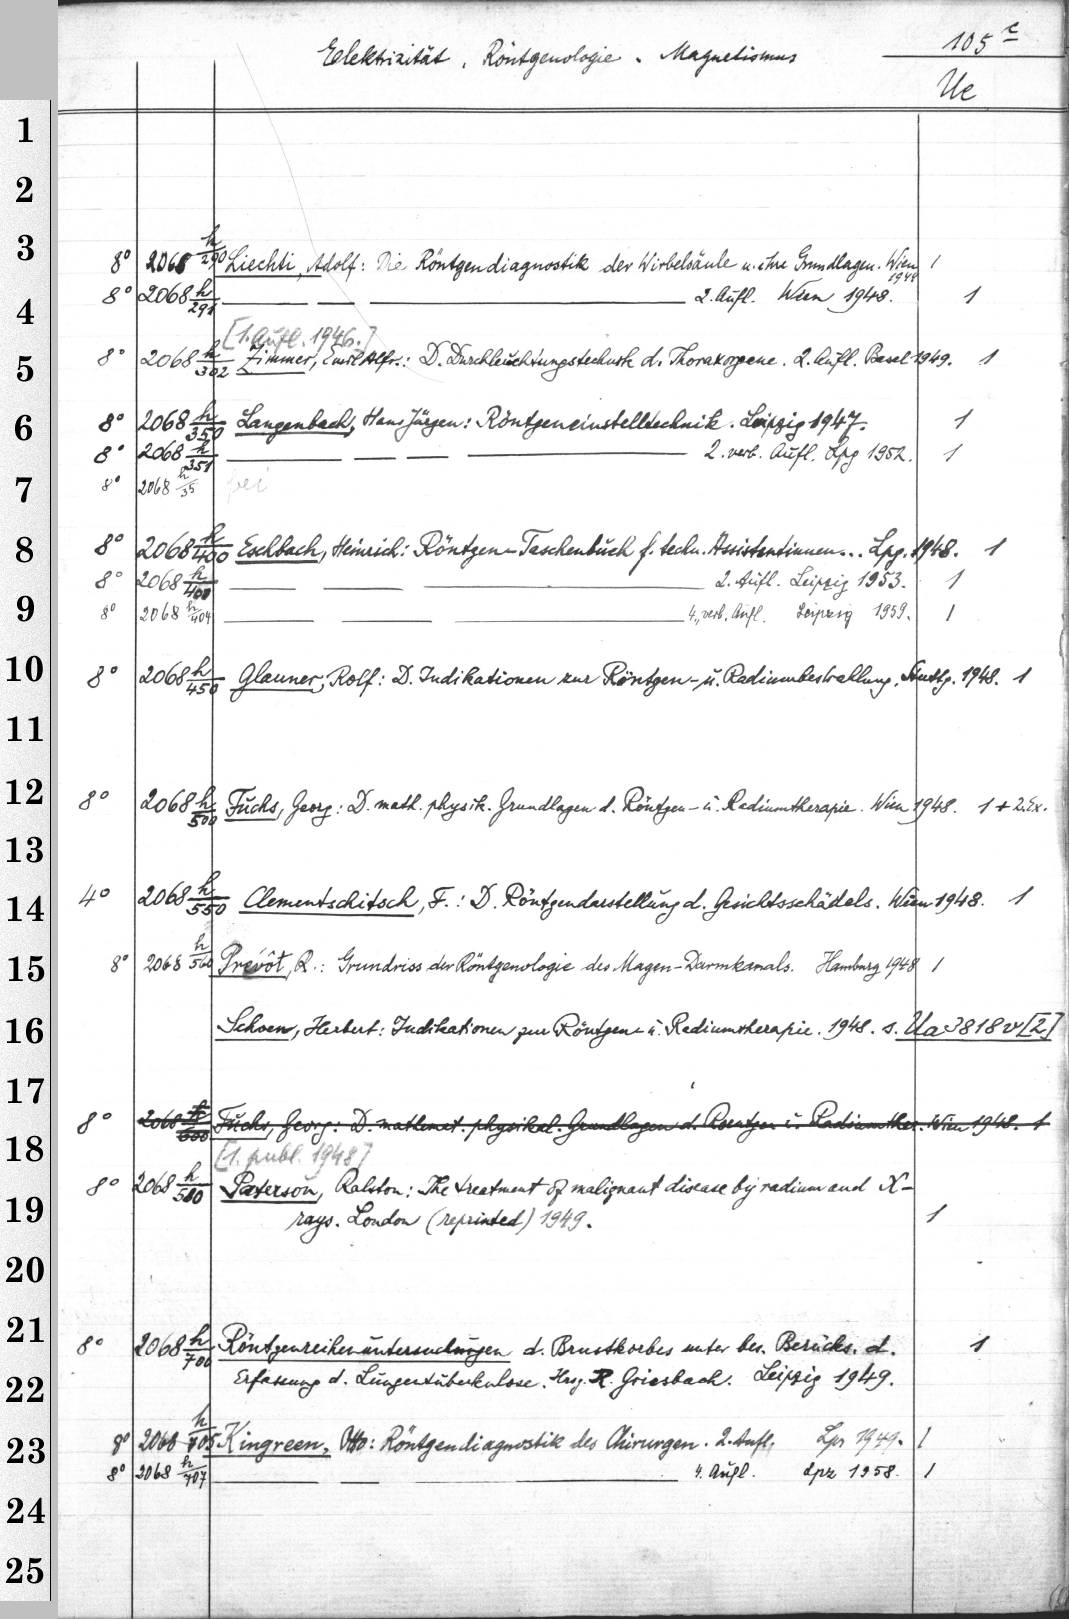 105 c
Elektrizität, Röntgenologie. Magnetismus
Ue
1
2
3
8° 2068 h/290 Liechti, Adolf: Die Röntgendiagnostik der Wirbelsäule u. ihre Grundlagen. Wien 1944 1
8° 2068 h/291 — — — 2. Aufl. Wien 1948. 1
4
[1. Aufl. 1946.]
8° 2068 h/302 Zimmer, Emil Alfr.: D. Durchleuchtungstechnik d. Thoraxorgane. 2. Aufl. Basel 1949. 1
5
6
8° 2068 h/350 Langenbach, Hans Jürgen: Röntgeneinstelltechnik. Leipzig 1947. 1
8° 2068 h/351 — — — — 2. verb. Aufl. Lpg 1952. 1
7
8° 2068 h/35
8
8° 2068 h/400 Eschbach, Heinrich: Röntgen-Taschenbuch f. techn. Assistentinnen... Lpg. 1948. 1
8° 2068 h/400 — — — 2. Aufl. Leipzig 1953. 1
9
8° 2068 h/404 — — — 4., verb. Aufl. Leipzig 1959. 1
10
8° 2068 h/450 Glauner, Rolf: D. Indikationen zur Röntgen- u. Radiumbestrahlung. Stuttg. 1948. 1
11
12
8° 2068 h/500 Fuchs, Georg: D. math. physik. Grundlagen d. Röntgen- u. Radiumtherapie. Wien 1948. 1 + 2. Ex.
13
14
4° 2068 h/550 Clementschitsch, F.: D. Röntgendarstellung d. Gesichtsschädels. Wien 1948. 1
15
8° 2068 h/560 Prévôt, R.: Grundriss der Röntgenologie des Magen-Darmkanals. Hamburg 1948 1
16
Schoen, Herbert: Indikationen zur Röntgen- u. Radiumtherapie. 1948. s. Ua 3818 v [2]
17
8° 2068 h/600 Fuchs, Georg: D. mathemat. physikal. Grundlagen d. Roentgen u. Radiumther. Wien 1948. 1
18
[1. publ. 1948]
8° 2068 h/580 Paterson, Ralston: The treatment of malignant disease by radium and X-
19
rays. London (reprinted) 1949. 1
20
21
8° 2068 h/700 Röntgenreihenuntersuchungen d. Brustkorbes unter bes. Berücks. d. 1
22
Erfassung d. Lungentuberkulose. Hrsg. R. Griesbach. Leipzig 1949.
23
8° 2068 h/705 Kingreen, Otto: Röntgendiagnostik des Chirurgen. 2. Aufl. Lpz 1949. 1
8° 2068 h/707 — — — 4. Aufl. Lpz 1958. 1
24
25